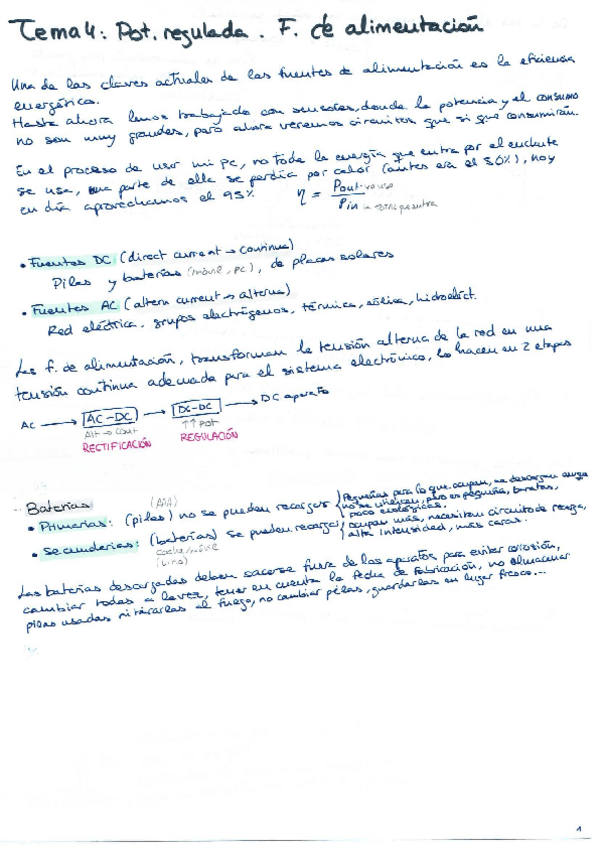 Tema 4: Pot. regulada. F. de alimentación
Una de las claves actuales de las fuentes de alimentación es la eficiencia
energética.
Hasta ahora hemos trabajado con sensores, donde la potencia y el consumo
no son muy grandes, pero ahora veremos circuitos que sí que consumirán.
En el proceso de usar mi pc, no toda la energía que entra por el enchufe
se usa, una parte de ella se perdía por calor (antes era el 50%), hoy
en día aprovechamos el 95% η = Pout / Pin la tensión que entra
• Fuentes DC (direct current → continua)
Pilas y baterías (móvil, pc), de placas solares
• Fuentes AC (altern current → alterna)
Red eléctrica, grupos electrógenos, térmica, eólica, hidroeléct.
Las f. de alimentación, transforman la tensión alterna de la red en una
tensión continua adecuada para el sistema electrónico, lo hacen en 2 etapas
AC → AC-DC → DC-DC → DC aparato
Alt → Cont ↑↑ Pot
RECTIFICACIÓN REGULACIÓN
Baterías (AAA)
• Primarias: (pilas) no se pueden recargar
Pequeñas para lo que ocupan, se descargan aunque
no se utilicen, pero es pequeña, baratas,
poco ecológicas.
• Secundarias: (baterías) se pueden recargar
coche, móvil
ocupan más, necesitan circuito de recarga,
alta intensidad, más caras.
Las baterías descargadas deben sacarse fuera de los aparatos para evitar corrosión,
cambiar todas a la vez, tener en cuenta la fecha de fabricación, no almacenar
pilas usadas ni tirarlas al fuego, no cambiar pilas, guardarlas en lugar fresco...
1